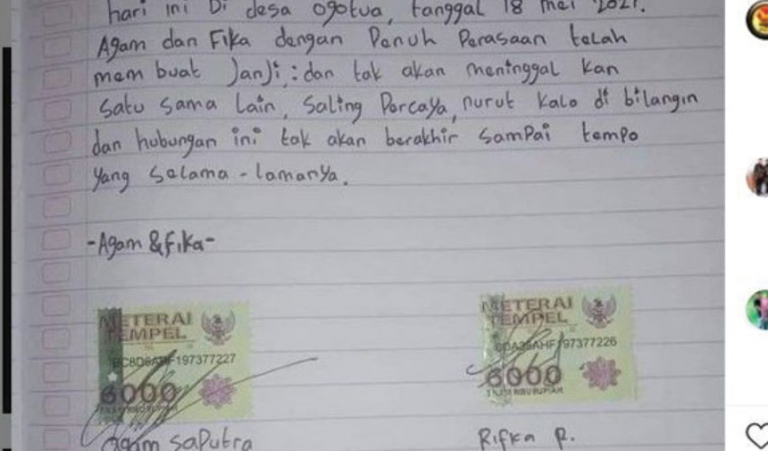 hari ini Di desa ogotua, tanggal 18 mei 2021.
Agam dan Fika dengan Penuh Perasaan telah
mem buat Janji : dan tak akan meninggal kan
satu sama lain, saling Percaya, nurut kalo di bilangin
dan hubungan ini tak akan berakhir sampai tempo
yang selama - lamanya.
-Agam & Fika-
METERAI TEMPEL
197377227
6000
ENAM RIBU RUPIAH
METERAI TEMPEL
97377226
6000
ENAM RIBU RUPIAH
Agam Saputra
Rifka R.